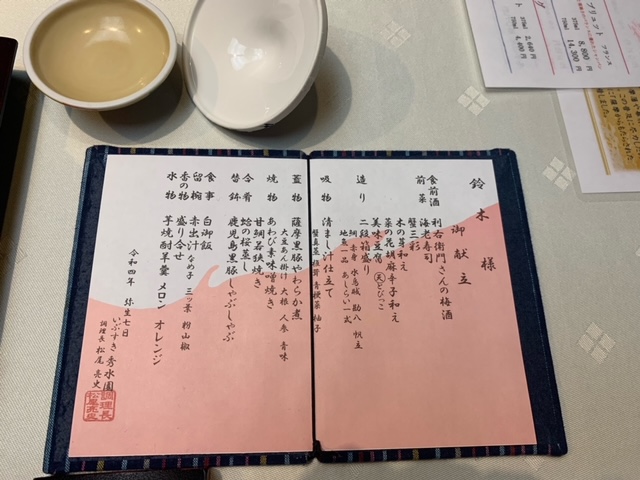 鈴木様
御献立
食前酒 利右衛門さんの梅酒
前菜 海老寿司
蟹三彩
木の芽和え
菜の花胡麻辛子和え
美味豆腐 天とびっこ
二段箱盛り
造り 鯛 赤身 水烏賊 勘八 帆立
地魚一品 あしらい一式
吸物 清まし汁仕立て
蟹真蒸 椎茸 青梗菜 柚子
蓋物 薩摩黒豚やわらか煮
大豆あん掛け 大根 人参 青味
焼物 あわび素味噌焼き
甘鯛若狭焼き
合肴 蛤の桜蒸し
替鉢 鹿児島黒豚しゃぶしゃぶ
食事 白御飯
留椀 赤出汁 なめ子 三ツ葉 粉山椒
香の物 盛り合せ
水物 芋焼酎羊羹 メロン オレンジ
令和四年 弥生七日
いぶすき秀水園
調理長 松尾亮史
ブリュット フランス
375ml 8,800円
750ml 14,300円
2,640円
4,400円